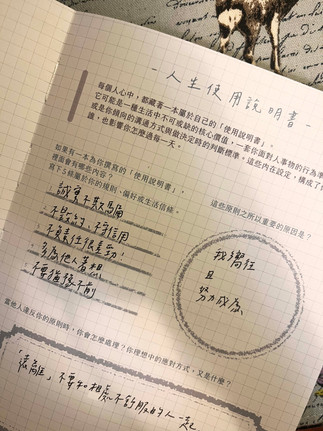 一人生使用說明書
每個人心中，都藏著一本屬於自己的「使用說明書」。
它可能是一種生活中不可或缺的核心價值，一套你面對人事物的行為準
或是你傾向的溝通方式與做決定時的判斷標準。這些內在設定，構成了
讓，也影響你怎麼過每一天。
如果有一本為你撰寫的「使用說明書」，
裡面會有哪些內容？
寫下5條屬於你的規則、偏好或生活信條。
誠實不欺騙
不
多為他人著想
不要猶豫不前
這些原則之所以重要的原因是？
我嚮往
且
努力成為
當他人違反你的原則時，你會怎麼處理？你理想中的應對方式，又是什麼？
「遠離」不要和相處不舒服的人一起